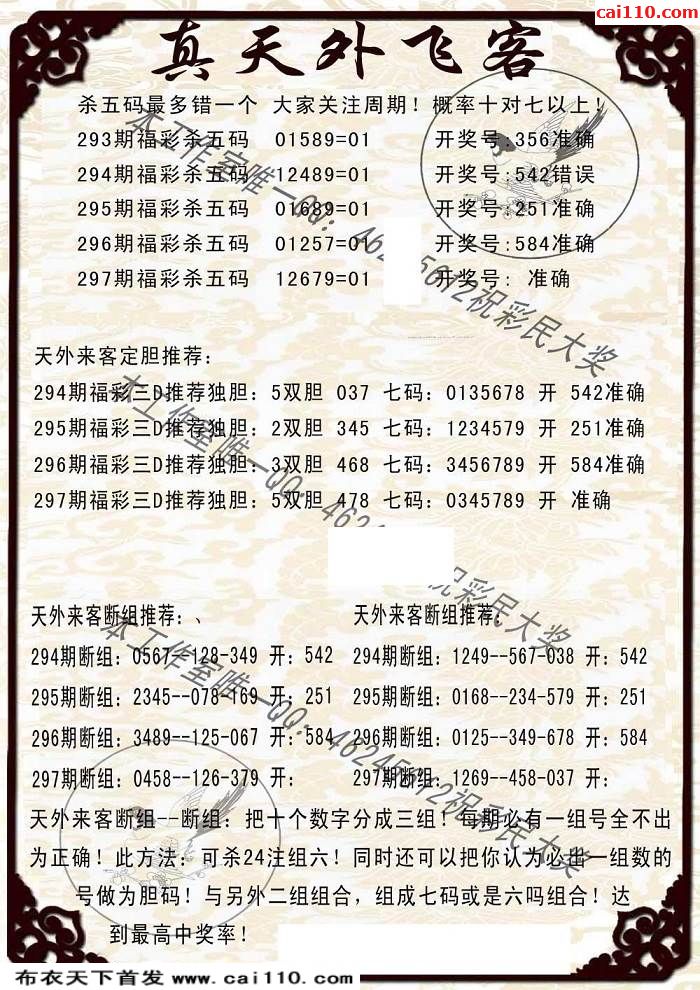 cai110.com
真天外飞客
杀五码最多错一个 大家关注周期！概率十对七以上！
293期福彩杀五码 01589=01 开奖号:356准确
294期福彩杀五码 12489=01 开奖号:542错误
295期福彩杀五码 01689=01 开奖号:251准确
296期福彩杀五码 01257=01 开奖号:584准确
297期福彩杀五码 12679=01 开奖号: 准确
天外来客定胆推荐：
294期福彩三D推荐独胆：5双胆 037 七码：0135678 开 542准确
295期福彩三D推荐独胆：2双胆 345 七码：1234579 开 251准确
296期福彩三D推荐独胆：3双胆 468 七码：3456789 开 584准确
297期福彩三D推荐独胆：5双胆 478 七码：0345789 开 准确
天外来客断组推荐：、 天外来客断组推荐：
294期断组：0567--128-349 开：542 294期断组：1249--567-038 开：542
295期断组：2345--078-169 开：251 295期断组：0168--234-579 开：251
296期断组：3489--125-067 开：584 296期断组：0125--349-678 开：584
297期断组：0458--126-379 开： 297期断组：1269--458-037 开：
天外来客断组--断组：把十个数字分成三组！每期必有一组号全不出
为正确！此方法：可杀24注组六！同时还可以把你认为必出一组数的
号做为胆码！与另外二组组合，组成七码或是六吗组合！达
到最高中奖率！
本工作室唯一QQ：46245612祝彩民大奖
本工作室唯一QQ：462 祝彩民大奖
本工作室唯一QQ：46245612祝彩民大奖
布衣天下首发 www.cai110.com